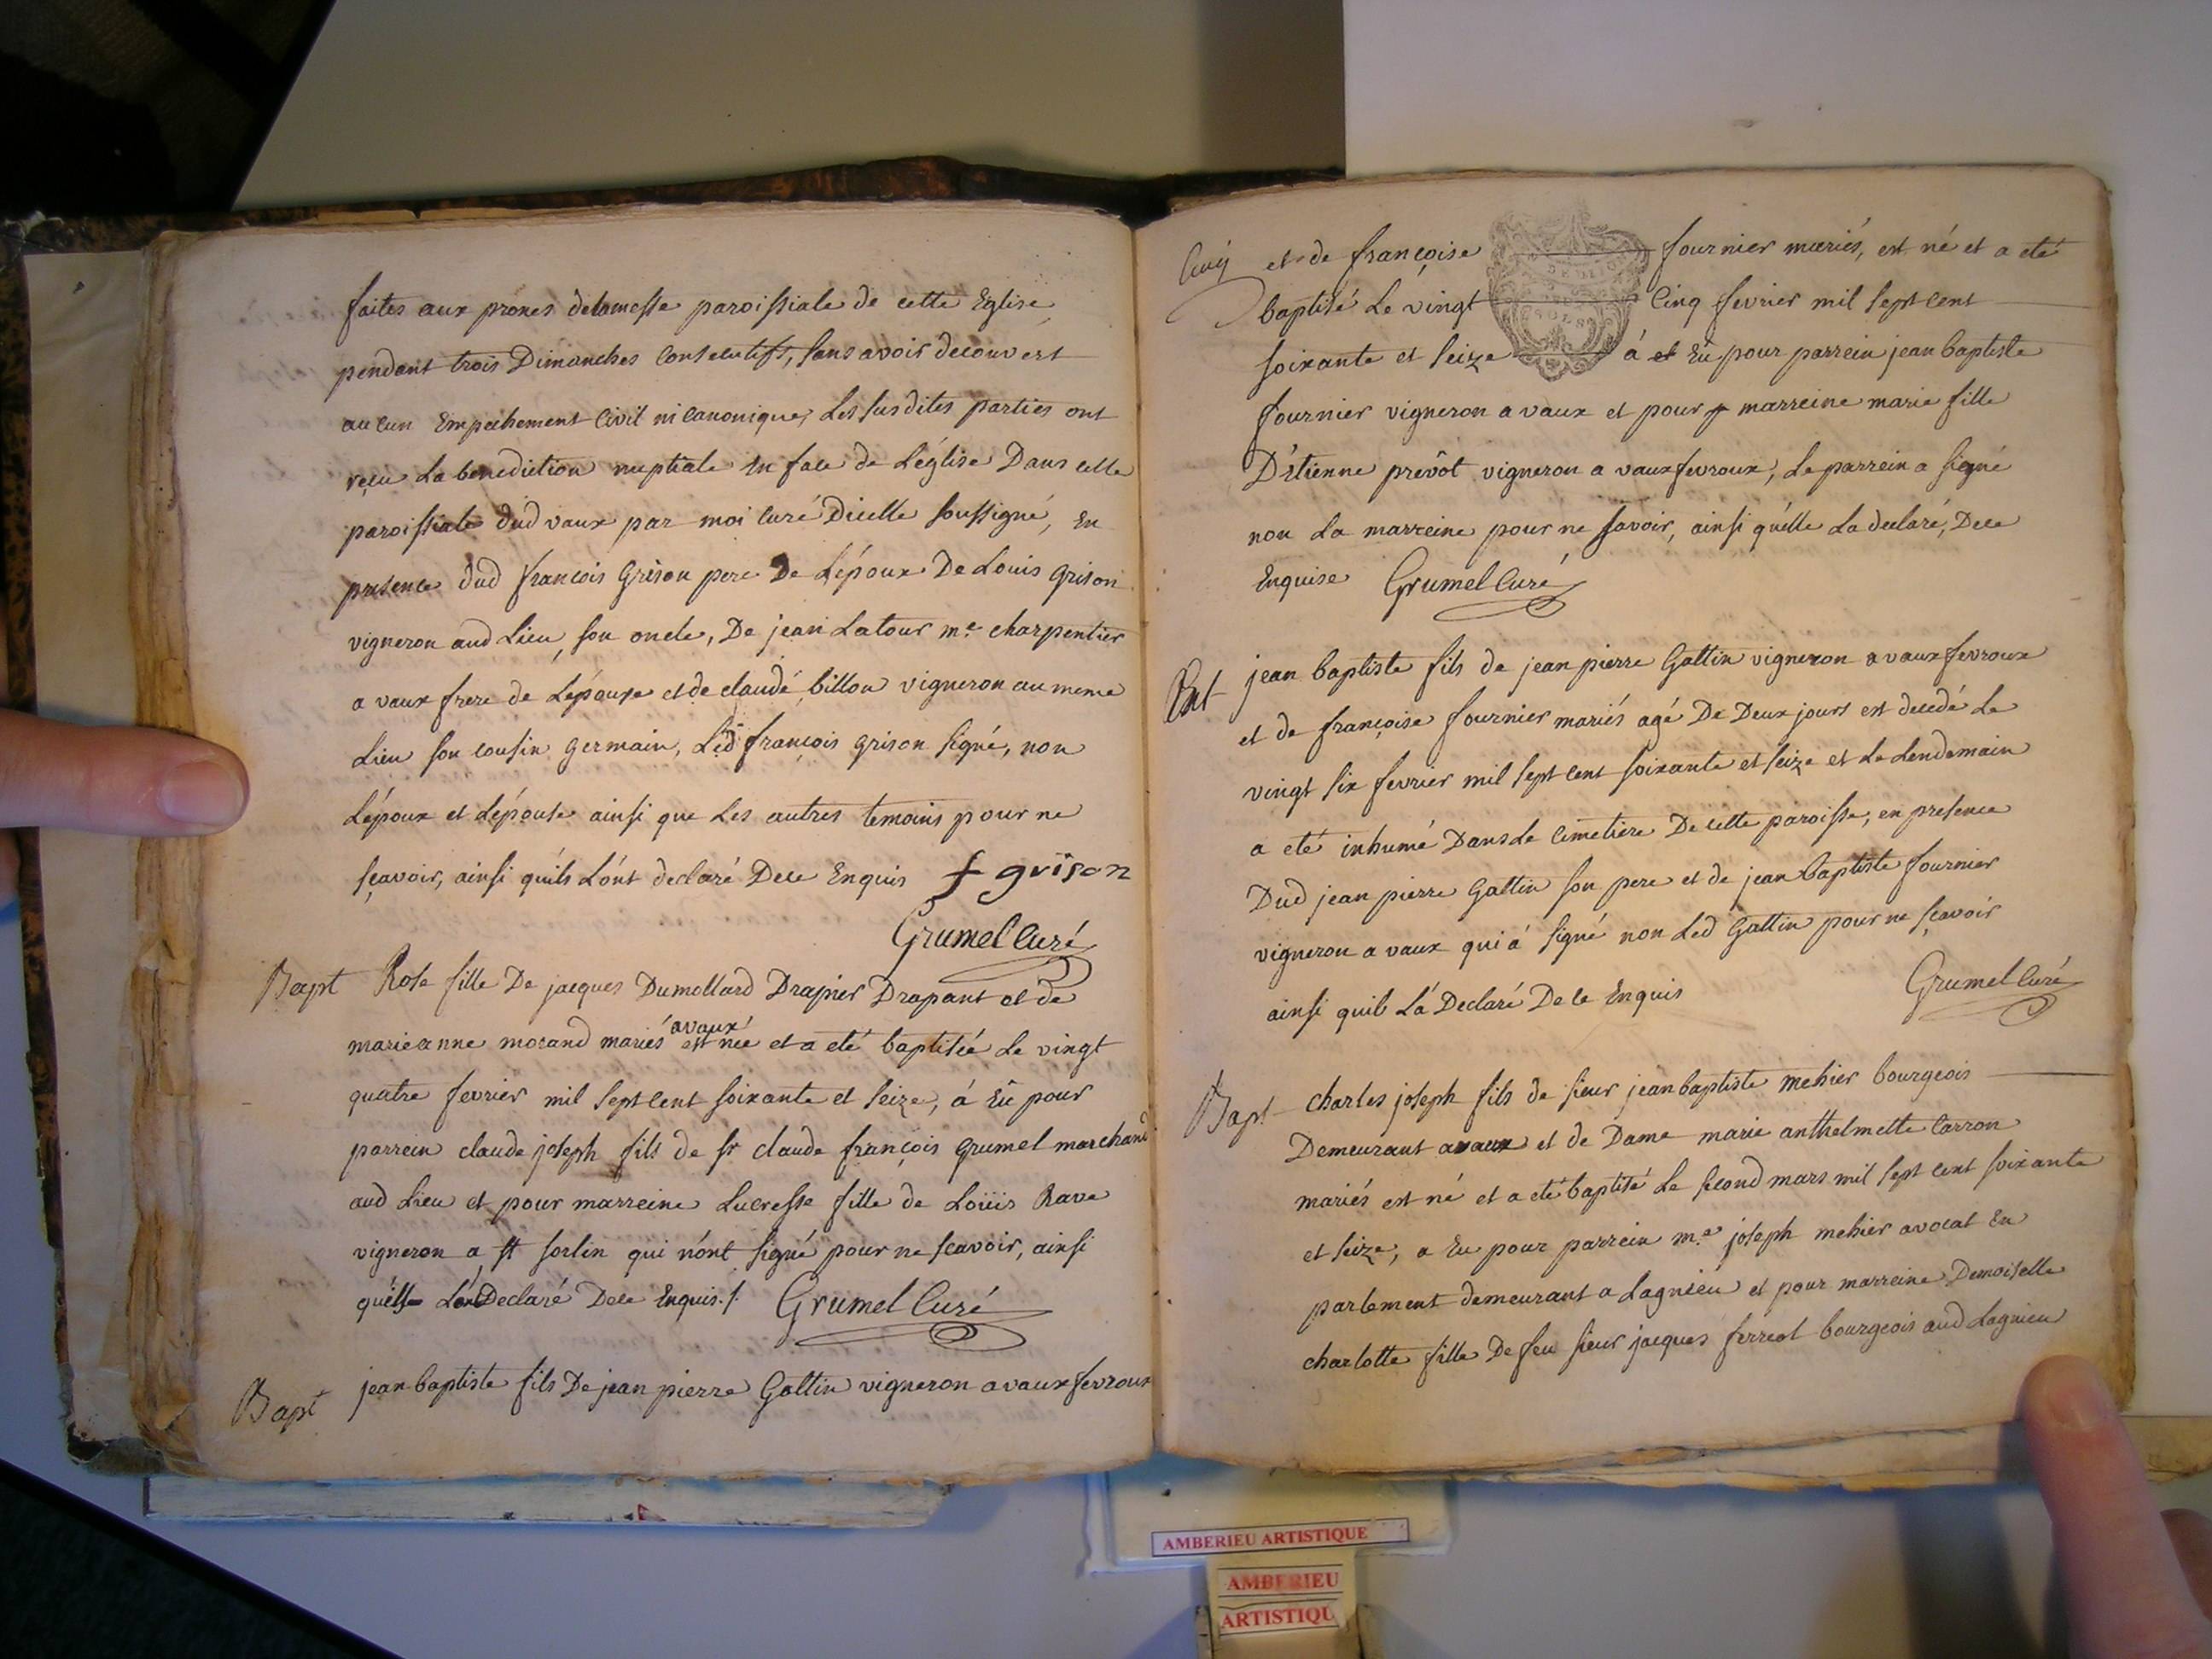 faites aux prônes delamesse paroissiale de cette Eglise
pendant trois Dimanches consecutifs, sans avoir decouvert
aucun Empechement Civil ni canonique, Les susdites parties ont
reçu La benediction nuptiale en face de L'église Dans cette
paroissiale dud vaux par moi curé D'icelle soussigné, En
presence dud françois Grison pere De L'époux De Louis grison
vigneron aud Lieu, son oncle, De jean Latour me charpentier
a vaux frere de L'épouse et de claude billon vigneron au meme
Lieu son cousin germain, Led françois grison signé, non
L'époux et L'épouse ainsi que Les autres temoins pour ne
sçavoir, ainsi qu'ils L'ont declaré Dece Enquis f grison
Grumel Curé
Bapt Rose fille De jacques Dumollard Drapier Drapant et de
avaux
marieanne morand mariés est née et a eté baptisée Le vingt
quatre fevrier mil sept cent soixante et seize, á Eû pour
parrein claude joseph fils de sr claude françois Grumel marchand
aud Lieu et pour marreine Lucresse fille de Loüis Rave
vigneron a st sorlin qui n'ont signé pour ne scavoir, ainsi
Declaré Dece Enquis./. Grumel Curé
Bapt jean baptiste fils De jean pierre Gattin vigneron a vauxfevroux
et de françoise fournier mariés, est né et a eté
baptisé Le vingt cinq fevrier mil sept cent
soixante et seize á et Eû pour parrein jean baptiste
fournier vigneron a vaux et pour marreine marie fille
D'etienne prevôt vigneron a vauxfevroux, Le parrein a signé
non La marreine pour ne savoir, ainsi qu'elle La declaré, Dece
Enquise Grumel Curé
jean baptiste fils de jean pierre Gattin vigneron a vauxfevroux
et de françoise fournier mariés agé De Deux jours est decedé Le
vingt six fevrier mil sept cent soixante et seize et Le Lendemain
a eté inhumé Dans Le cimetiere De cette paroisse, en presence
Dud jean pierre Gattin son pere et de jean baptiste fournier
vigneron a vaux qui á signé non Led Gattin pour ne sçavoir
ainsi quil Lá Declaré De ce Enquis Grumel Curé
Bapt charles joseph fils de sieur jean baptiste mehier bourgeois
Demeurant avaux et de Dame marie anthelmette Carron
mariés est né et a eté baptisé Le second mars mil sept cent soixante
et seize, a Eu pour parrein me joseph mehier avocat En
parlement demeurant a Lagnieu et pour marreine Demoiselle
charlotte fille De feu sieur jacques ferreol bourgeois aud Lagnieu
AMBERIEU ARTISTIQUE
AMBERIEU
ARTISTIQU